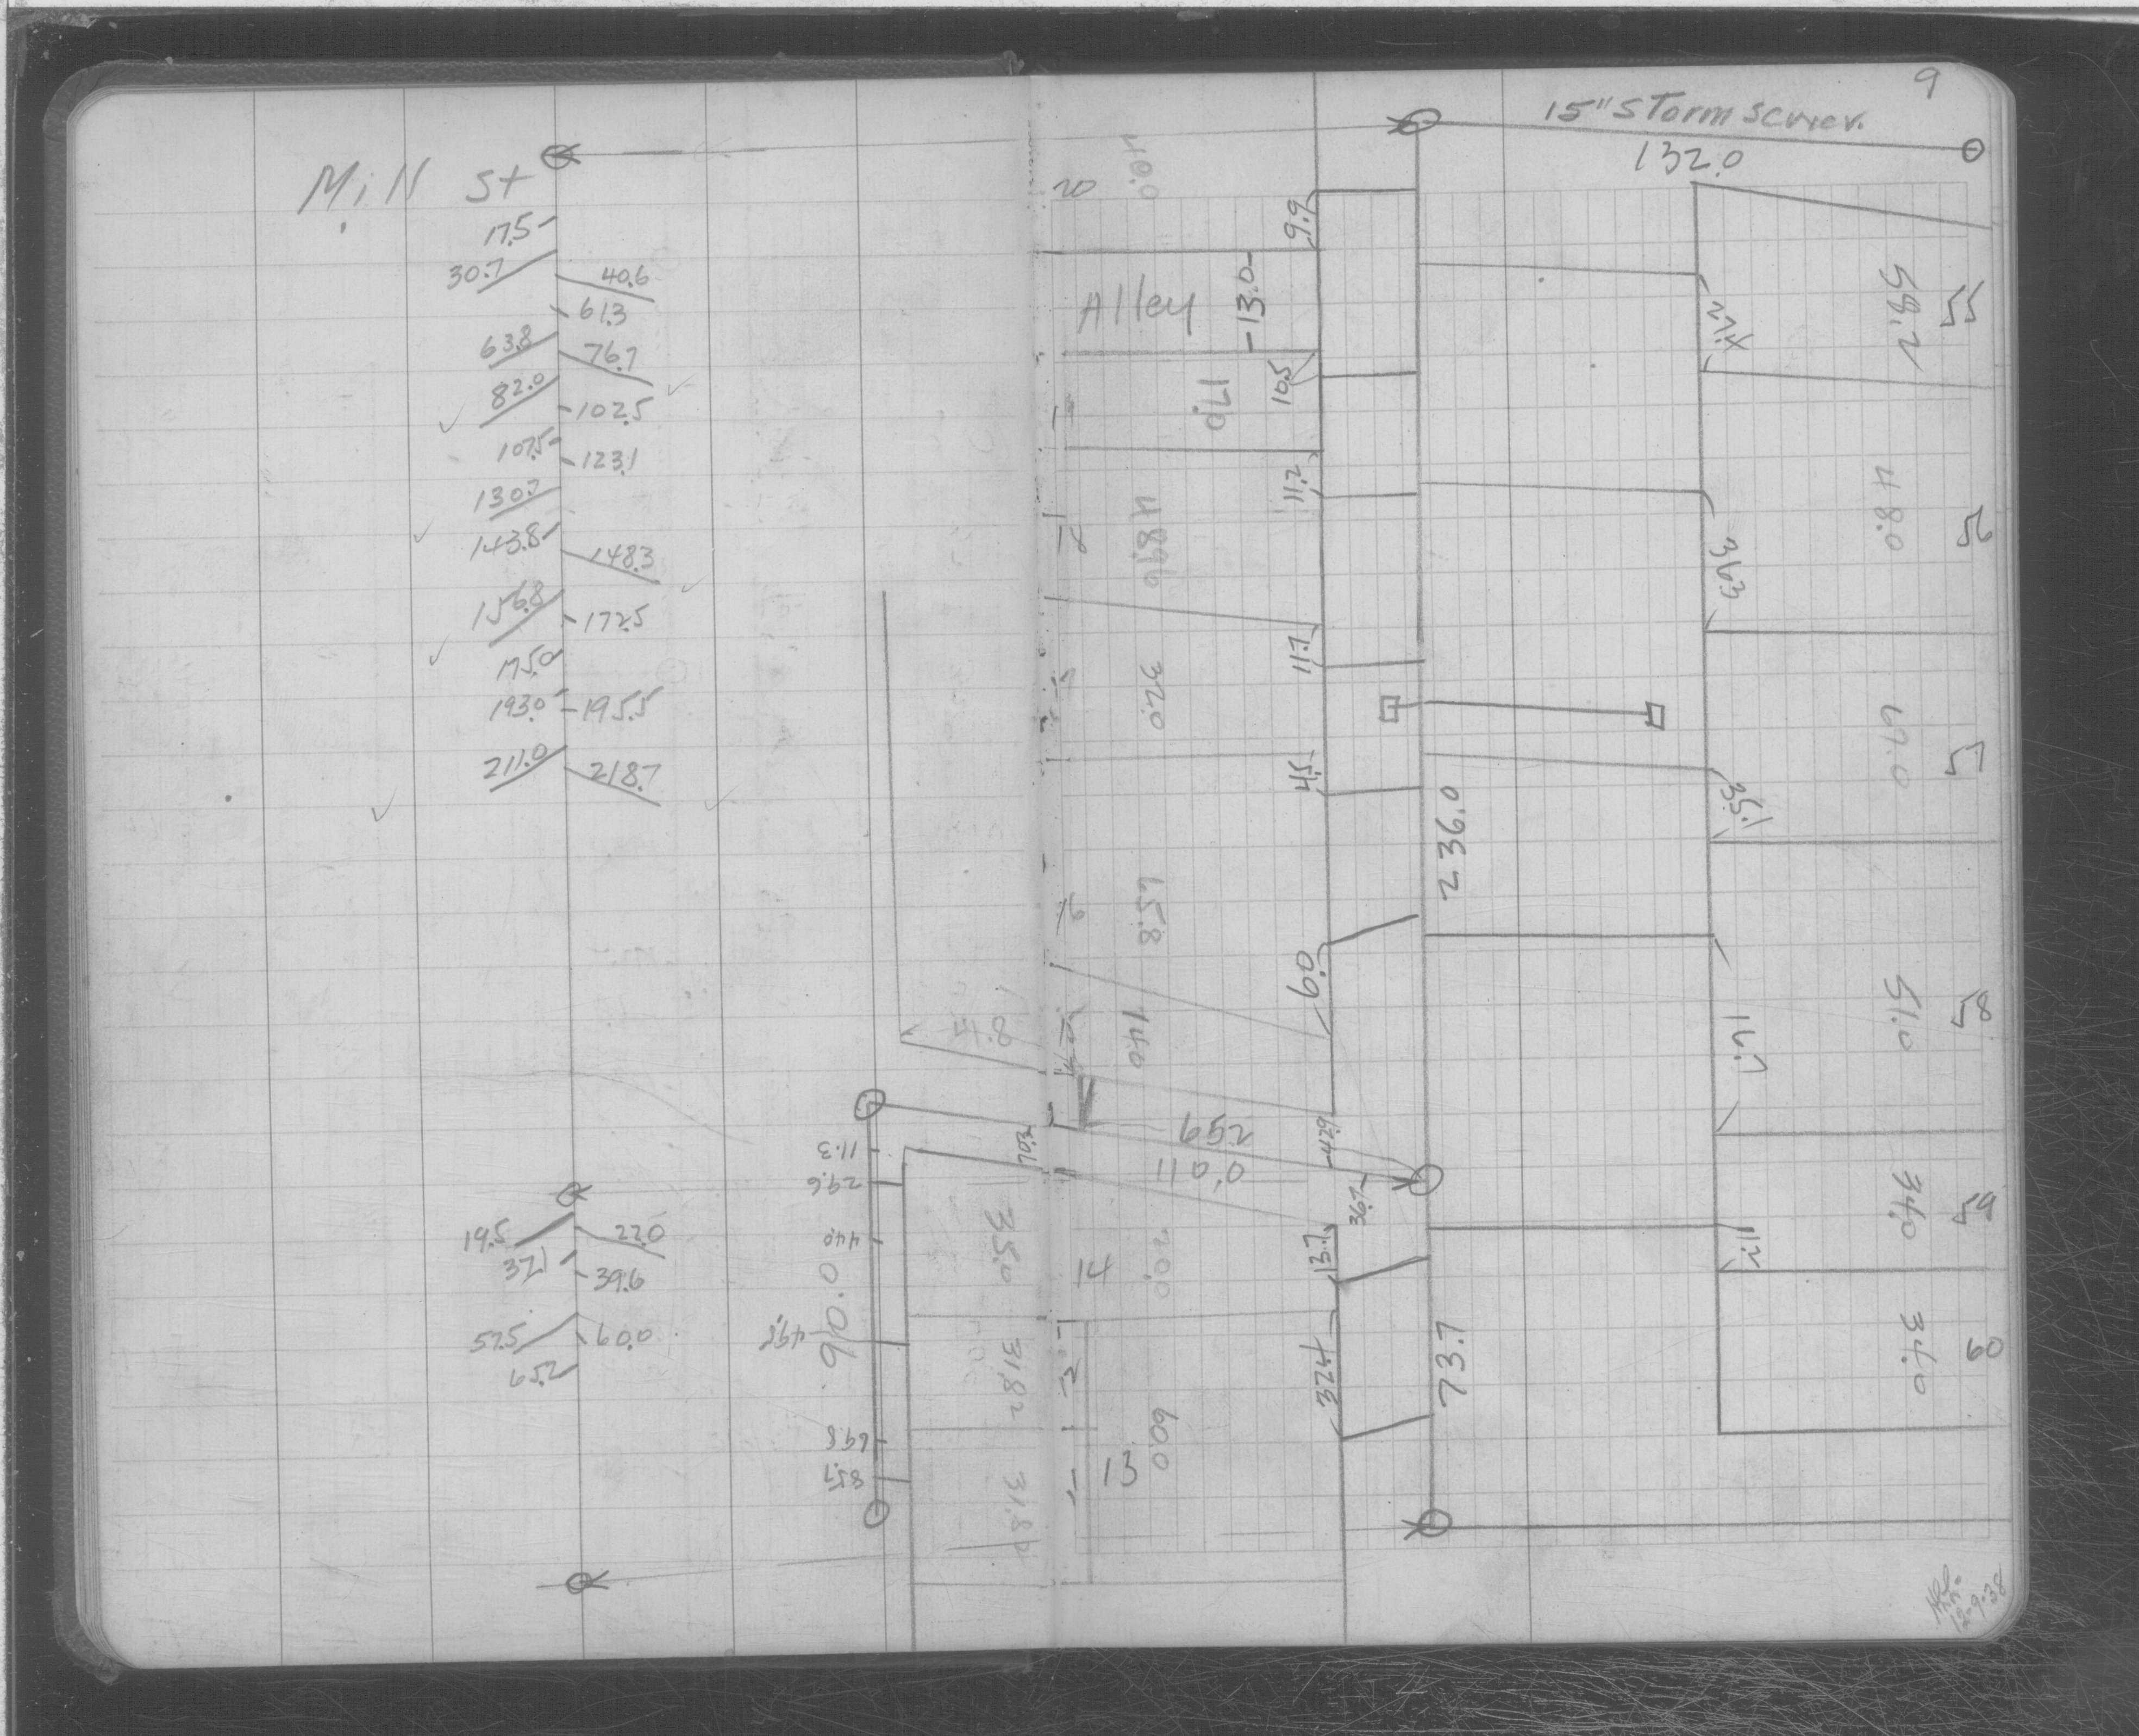 9
15" Storm Sewer.
132.0
Mill St
17.5
30.7
40.6
61.3
63.8
76.7
82.0
102.5
107.5
123.1
130.7
143.8
148.3
156.8
172.5
175.0
193.0
195.5
211.0
218.7
19.5
22.0
37.1
39.6
57.5
60.0
65.2
11.3
29.6
44.0
90.0
49.5
69.8
85.7
35.0
31.82
31.82
20
40.0
9.9
Alley
-13.0-
17.0
10.5
11.2
48.96
11.7
32.0
4.5
65.8
6.0
14.0
65.2
110.0
42.9
36.7
14
20.0
13.7
37.4
13
60.0
236.0
73.7
58.2
55
48.0
56
36.3
67.0
57
35.1
51.0
58
34.0
59
11.1
34.0
60
12-9-38